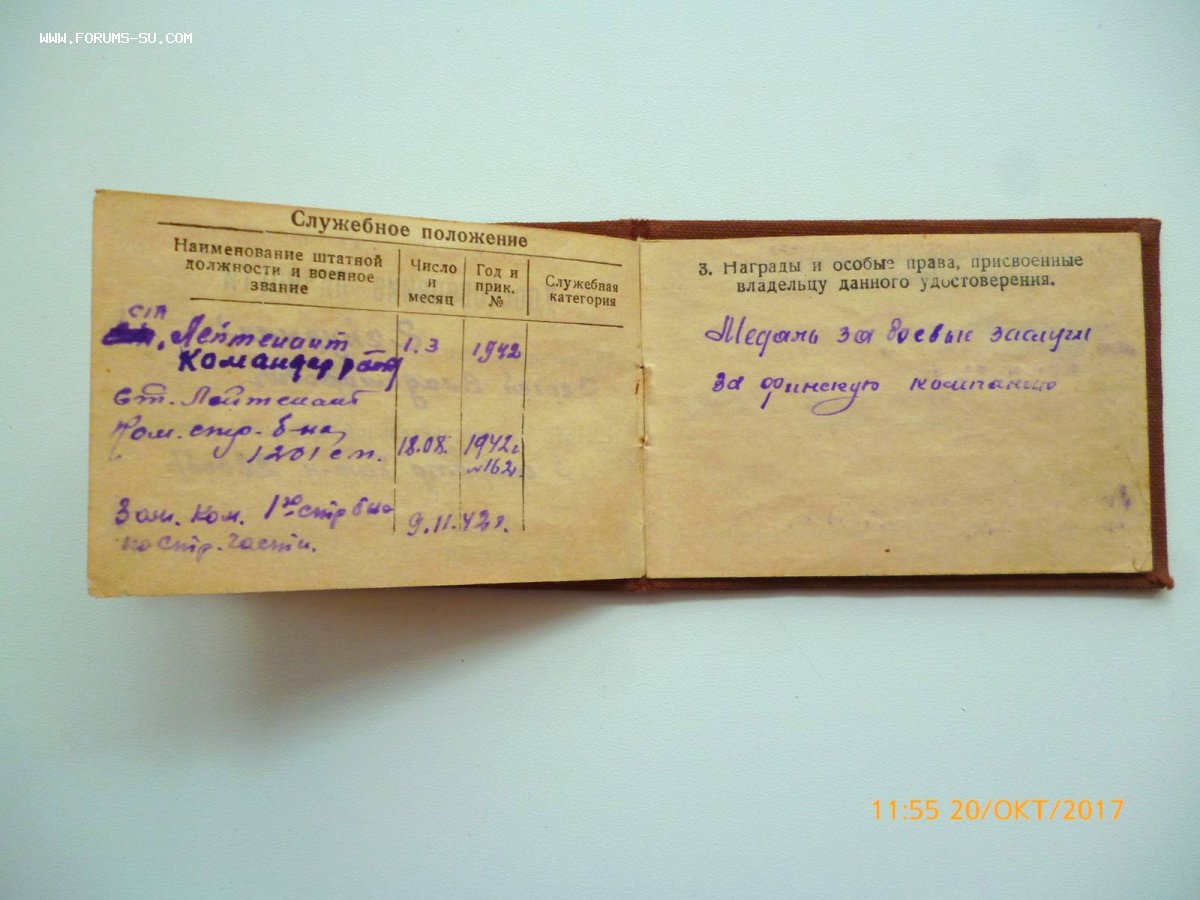 WWW.FORUMS-SU.COM
Служебное положение
Наименование штатной должности и военное звание
Число и месяц
Год и прик. №
Служебная категория
Лейтенант 1.3 1942
Командир роты
Ст. Лейтенант
Ком. стр. б-на
1201 сп. 18.08. 1942г
№162
Зам. ком. 1го стр б-на 9.11.42г.
по стр. части.
3. Награды и особые права, присвоенные
владельцу данного удостоверения.
Медаль за боевые заслуги
за финскую компанию
11:55 20/ОКТ/2017